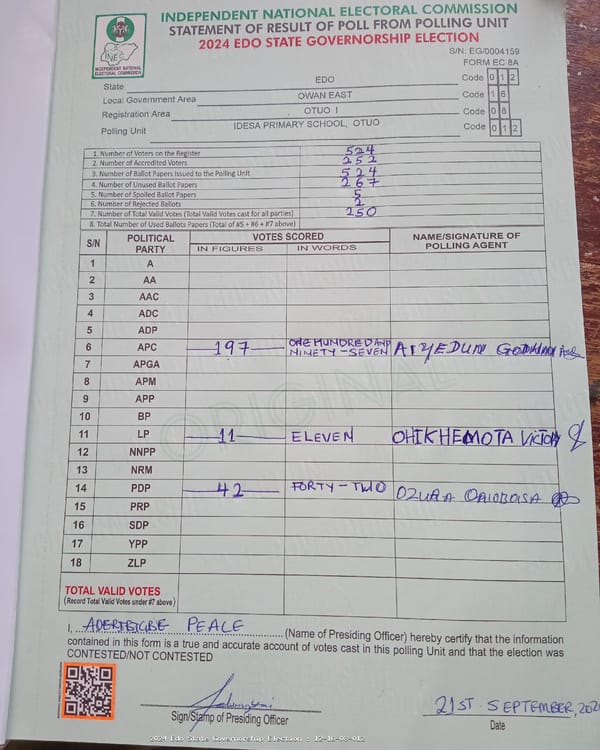 INDEPENDENT NATIONAL ELECTORAL COMMISSION
STATEMENT OF RESULT OF POLL FROM POLLING UNIT
2024 EDO STATE GOVERNORSHIP ELECTION
S/N: EG/0004159
FORM EC 8A
INEC
INDEPENDENT NATIONAL ELECTORAL COMMISSION
State EDO Code 0 1 2
Local Government Area OWAN EAST Code 1 6
Registration Area OTUO I Code 0 8
Polling Unit IDESA PRIMARY SCHOOL, OTUO Code 0 1 2
1. Number of Voters on the Register 524
2. Number of Accredited Voters 252
3. Number of Ballot Papers Issued to the Polling Unit 524
4. Number of Unused Ballot Papers 267
5. Number of Spoiled Ballot Papers 5
6. Number of Rejected Ballots 2
7. Number of Total Valid Votes (Total Valid Votes cast for all parties) 250
8. Total Number of Used Ballots Papers (Total of #5 + #6 + #7 above)
S/N POLITICAL PARTY VOTES SCORED NAME/SIGNATURE OF POLLING AGENT
IN FIGURES IN WORDS
1 A
2 AA
3 AAC
4 ADC
5 ADP
6 APC 197 ONE HUNDRED AND NINETY-SEVEN
7 APGA
8 APM
9 APP
10 BP
11 LP 11 ELEVEN OHIKHEMOTA VICTOR
12 NNPP
13 NRM
14 PDP 42 FORTY-TWO
15 PRP
16 SDP
17 YPP
18 ZLP
ORIGINAL
TOTAL VALID VOTES
(Record Total Valid Votes under #7 above)
I, PEACE (Name of Presiding Officer) hereby certify that the information
contained in this form is a true and accurate account of votes cast in this polling Unit and that the election was
CONTESTED/NOT CONTESTED
Sign/Stamp of Presiding Officer
21ST SEPTEMBER, 202
Date
2024 Edo State Governorship Election - 12-16-08-012